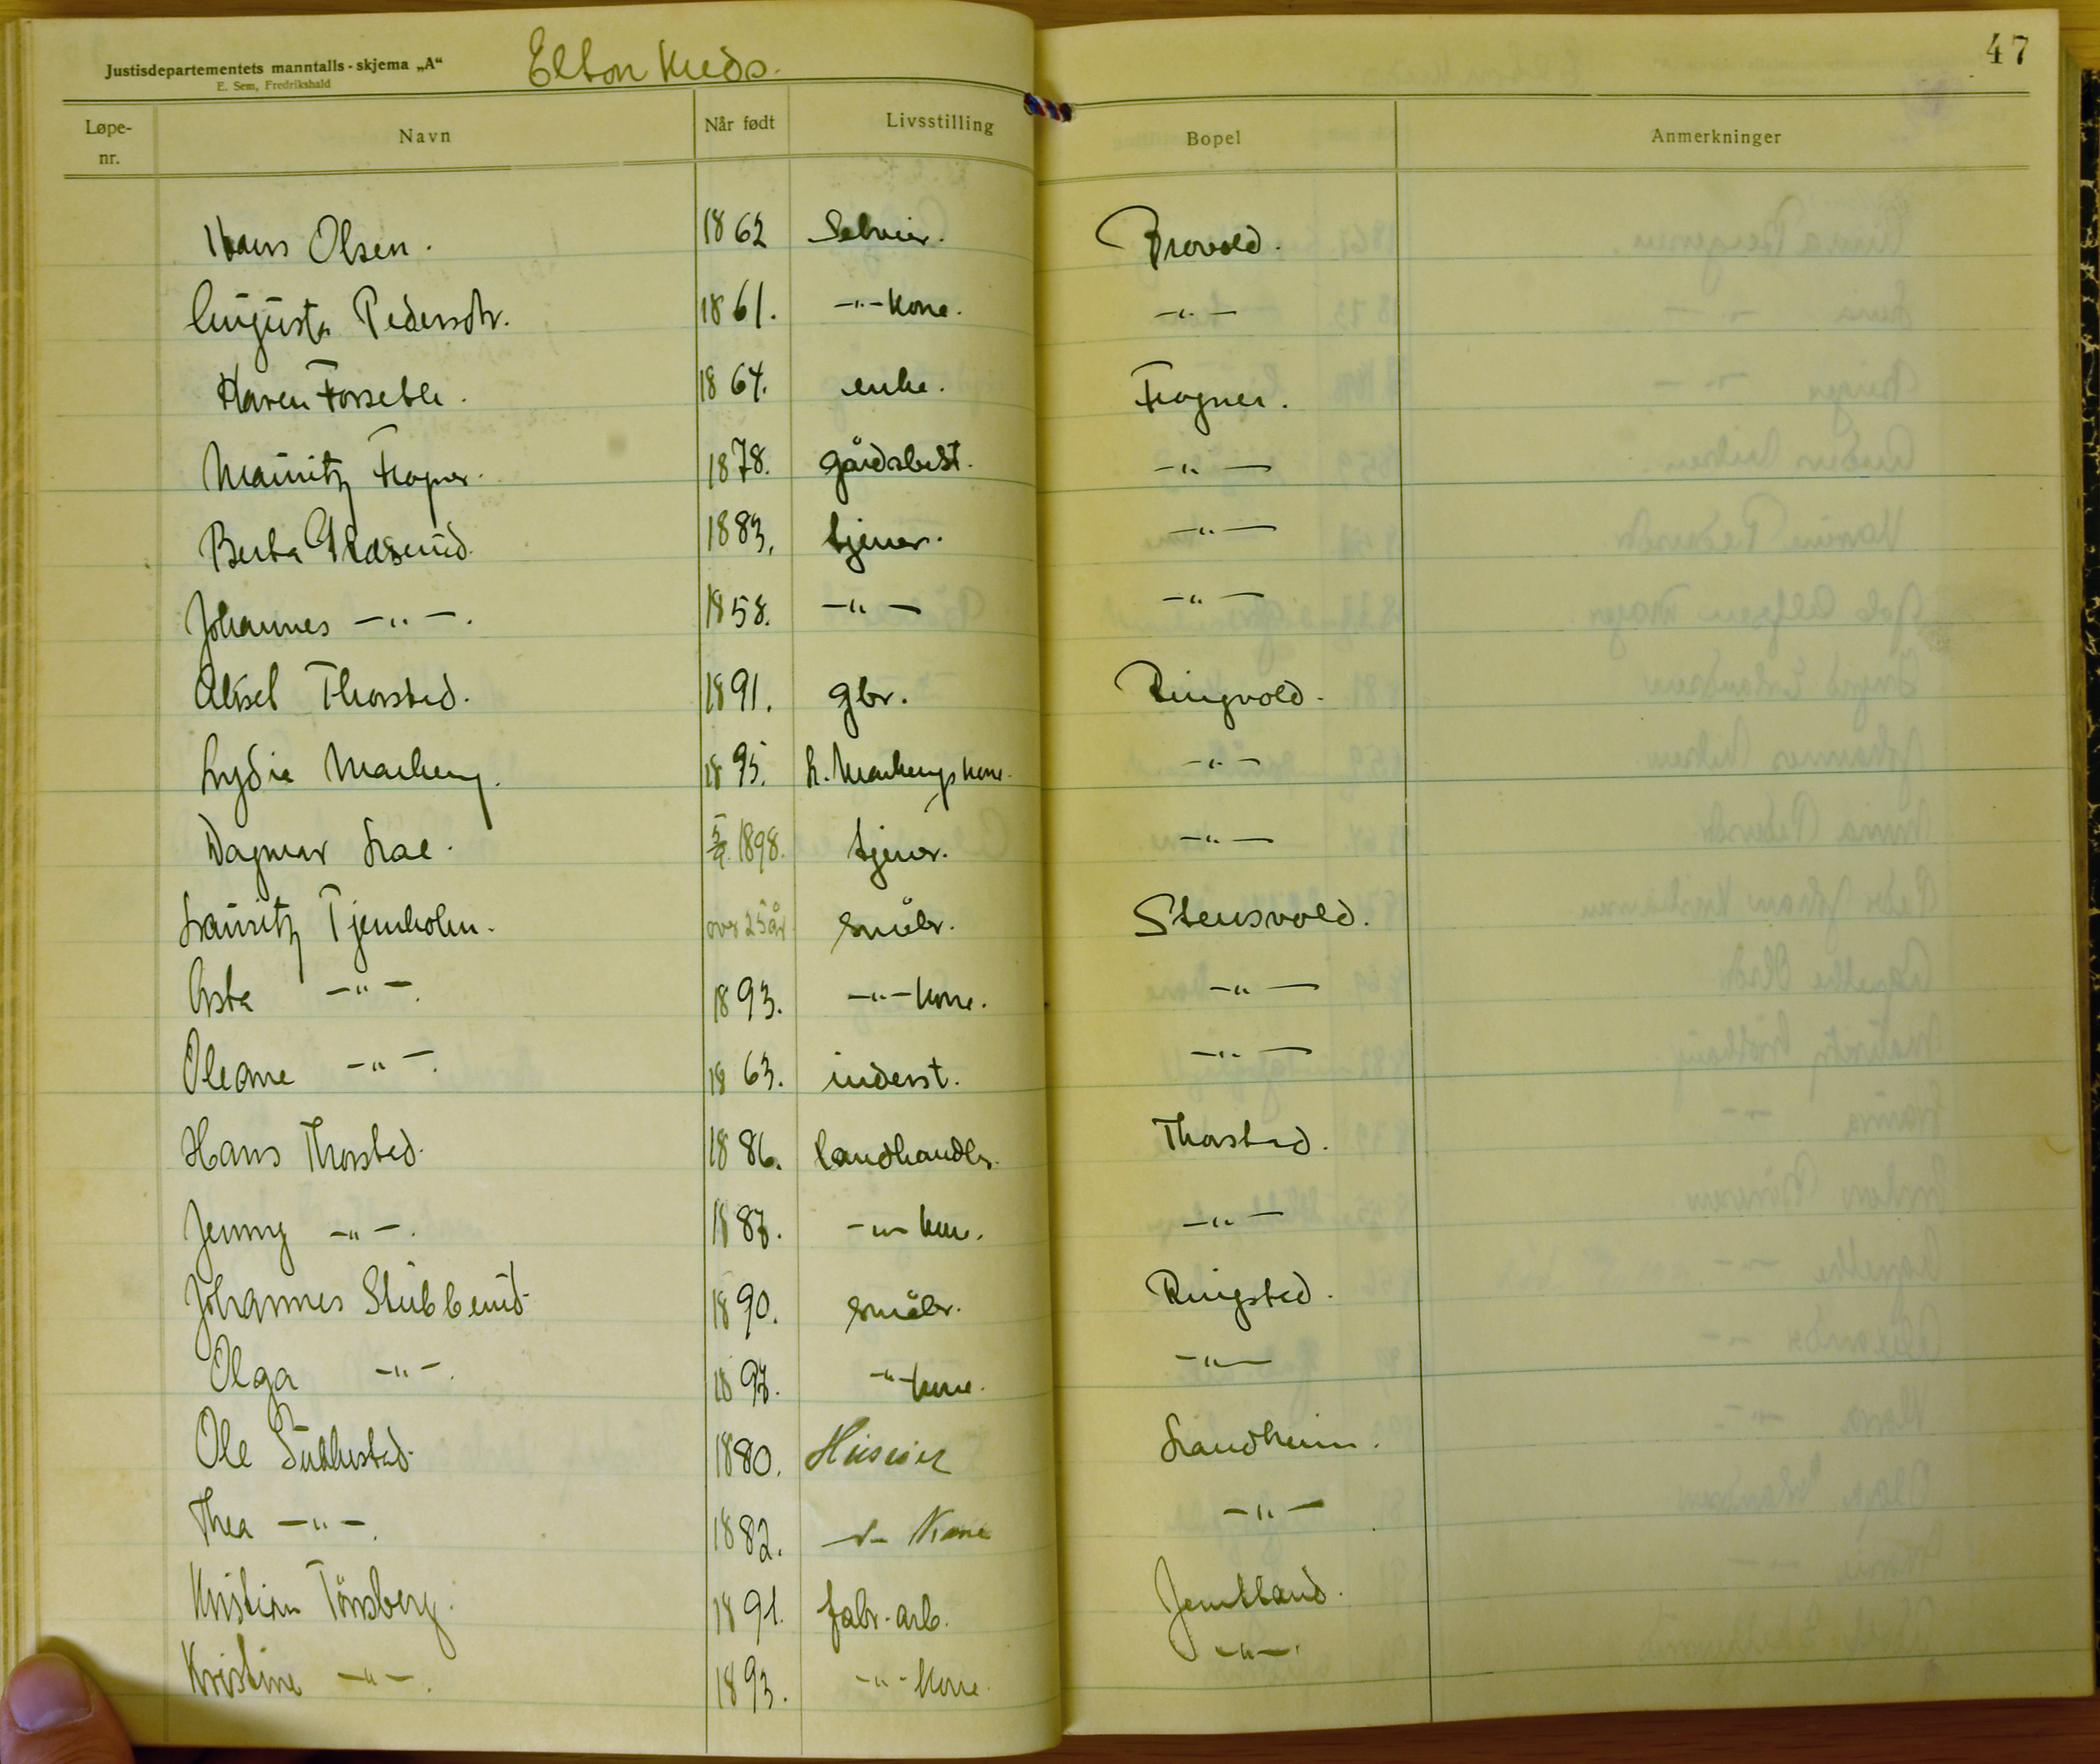 Justisdepartementets manntalls-skjema „A“
E. Sem, Fredrikshald
Elton kreds.
47
Løpe-nr. Navn Når født Livsstilling Bopel Anmerkninger
Hans Olsen. 1862 Selveier. Brovold.
Augusta Pedersdtr. 1861. -"- kone. -"-
Karen Forseth. 1864. enke. Frogner.
Mauritz Frogner. 1878. gårdsbest. -"-
Berta 1883. tjener. -"-
Johannes -"-. 1858. -"- -"-
Aksel Thorstad. 1891. gbr. Ringvold.
Lydia Marberg. 1895. h. Marbergs kone. -"-
Dagmar 1898. tjener. -"-
Lauritz Tjernholm. over 25 år småbr. Stensvold.
Asta -"-. 1893. -"- kone. -"-
Oleane -"-. 1863. inderst. -"-
Hans Thorstad. 1886. landhandler. Thorstad.
Jenny -"-. 188 -"- kone. -"-
Johannes Stubberud 1890. småbr. Ringstad.
Olga -"-. 189 -"- kone. -"-
Ole 1880. Huseier Landheim.
Thea -"-. 1882. -"- Kone -"-
Kristian Tønsberg. 1891. fabr. arb. Jemtland.
Kristine -"-. 1893. -"- Kone. -"-